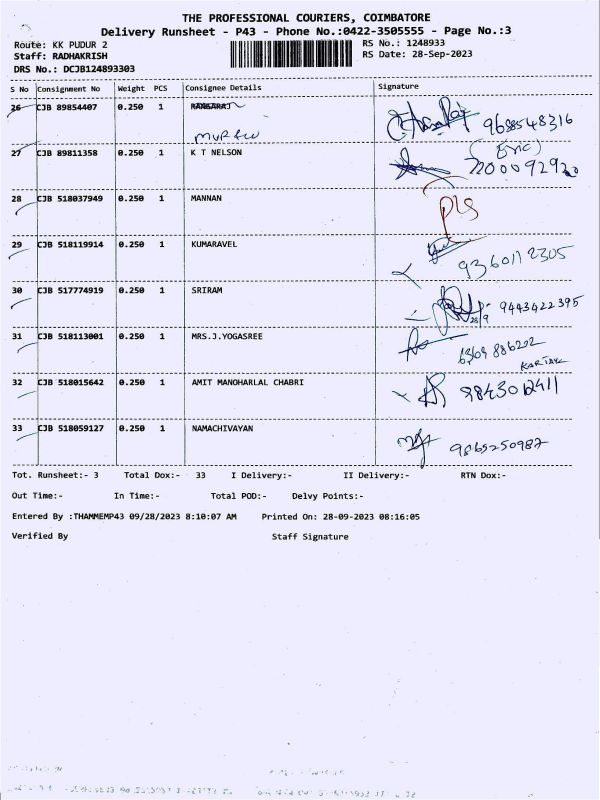 THE PROFESSIONAL COURIERS, COIMBATORE
Delivery Runsheet - P43 - Phone No.:0422-3505555 - Page No.:3
Route: KK PUDUR 2 RS No.: 1248933
Staff: RADHAKRISH RS Date: 28-Sep-2023
DRS No.: DCJB124893303
S No Consignment No Weight PCS Consignee Details Signature
26 CJB 89854407 0.250 1 RANGARAJ
9688548316
27 CJB 89811358 0.250 1 K T NELSON (Eric)
28 CJB 518037949 0.250 1 MANNAN
29 CJB 518119914 0.250 1 KUMARAVEL
9360112305
30 CJB 517774919 0.250 1 SRIRAM 9443422395
28/9
31 CJB 518113001 0.250 1 MRS.J.YOGASREE
6369 886202
32 CJB 518015642 0.250 1 AMIT MANOHARLAL CHABRI
33 CJB 518059127 0.250 1 NAMACHIVAYAN
9865250987
Tot. Runsheet:- 3 Total Dox:- 33 I Delivery:- II Delivery:- RTN Dox:-
Out Time:- In Time:- Total POD:- Delvy Points:-
Entered By :THAMMEMP43 09/28/2023 8:10:07 AM Printed On: 28-09-2023 08:16:05
Verified By Staff Signature